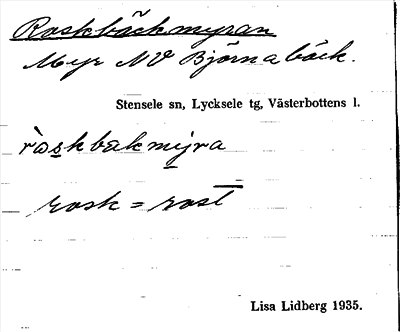 Raskbäckmyran
Myr NV Björnabäck.
Stensele sn, Lycksele tg, Västerbottens l.
ràskbakmýra
rosk = rost
Lisa Lidberg 1935.